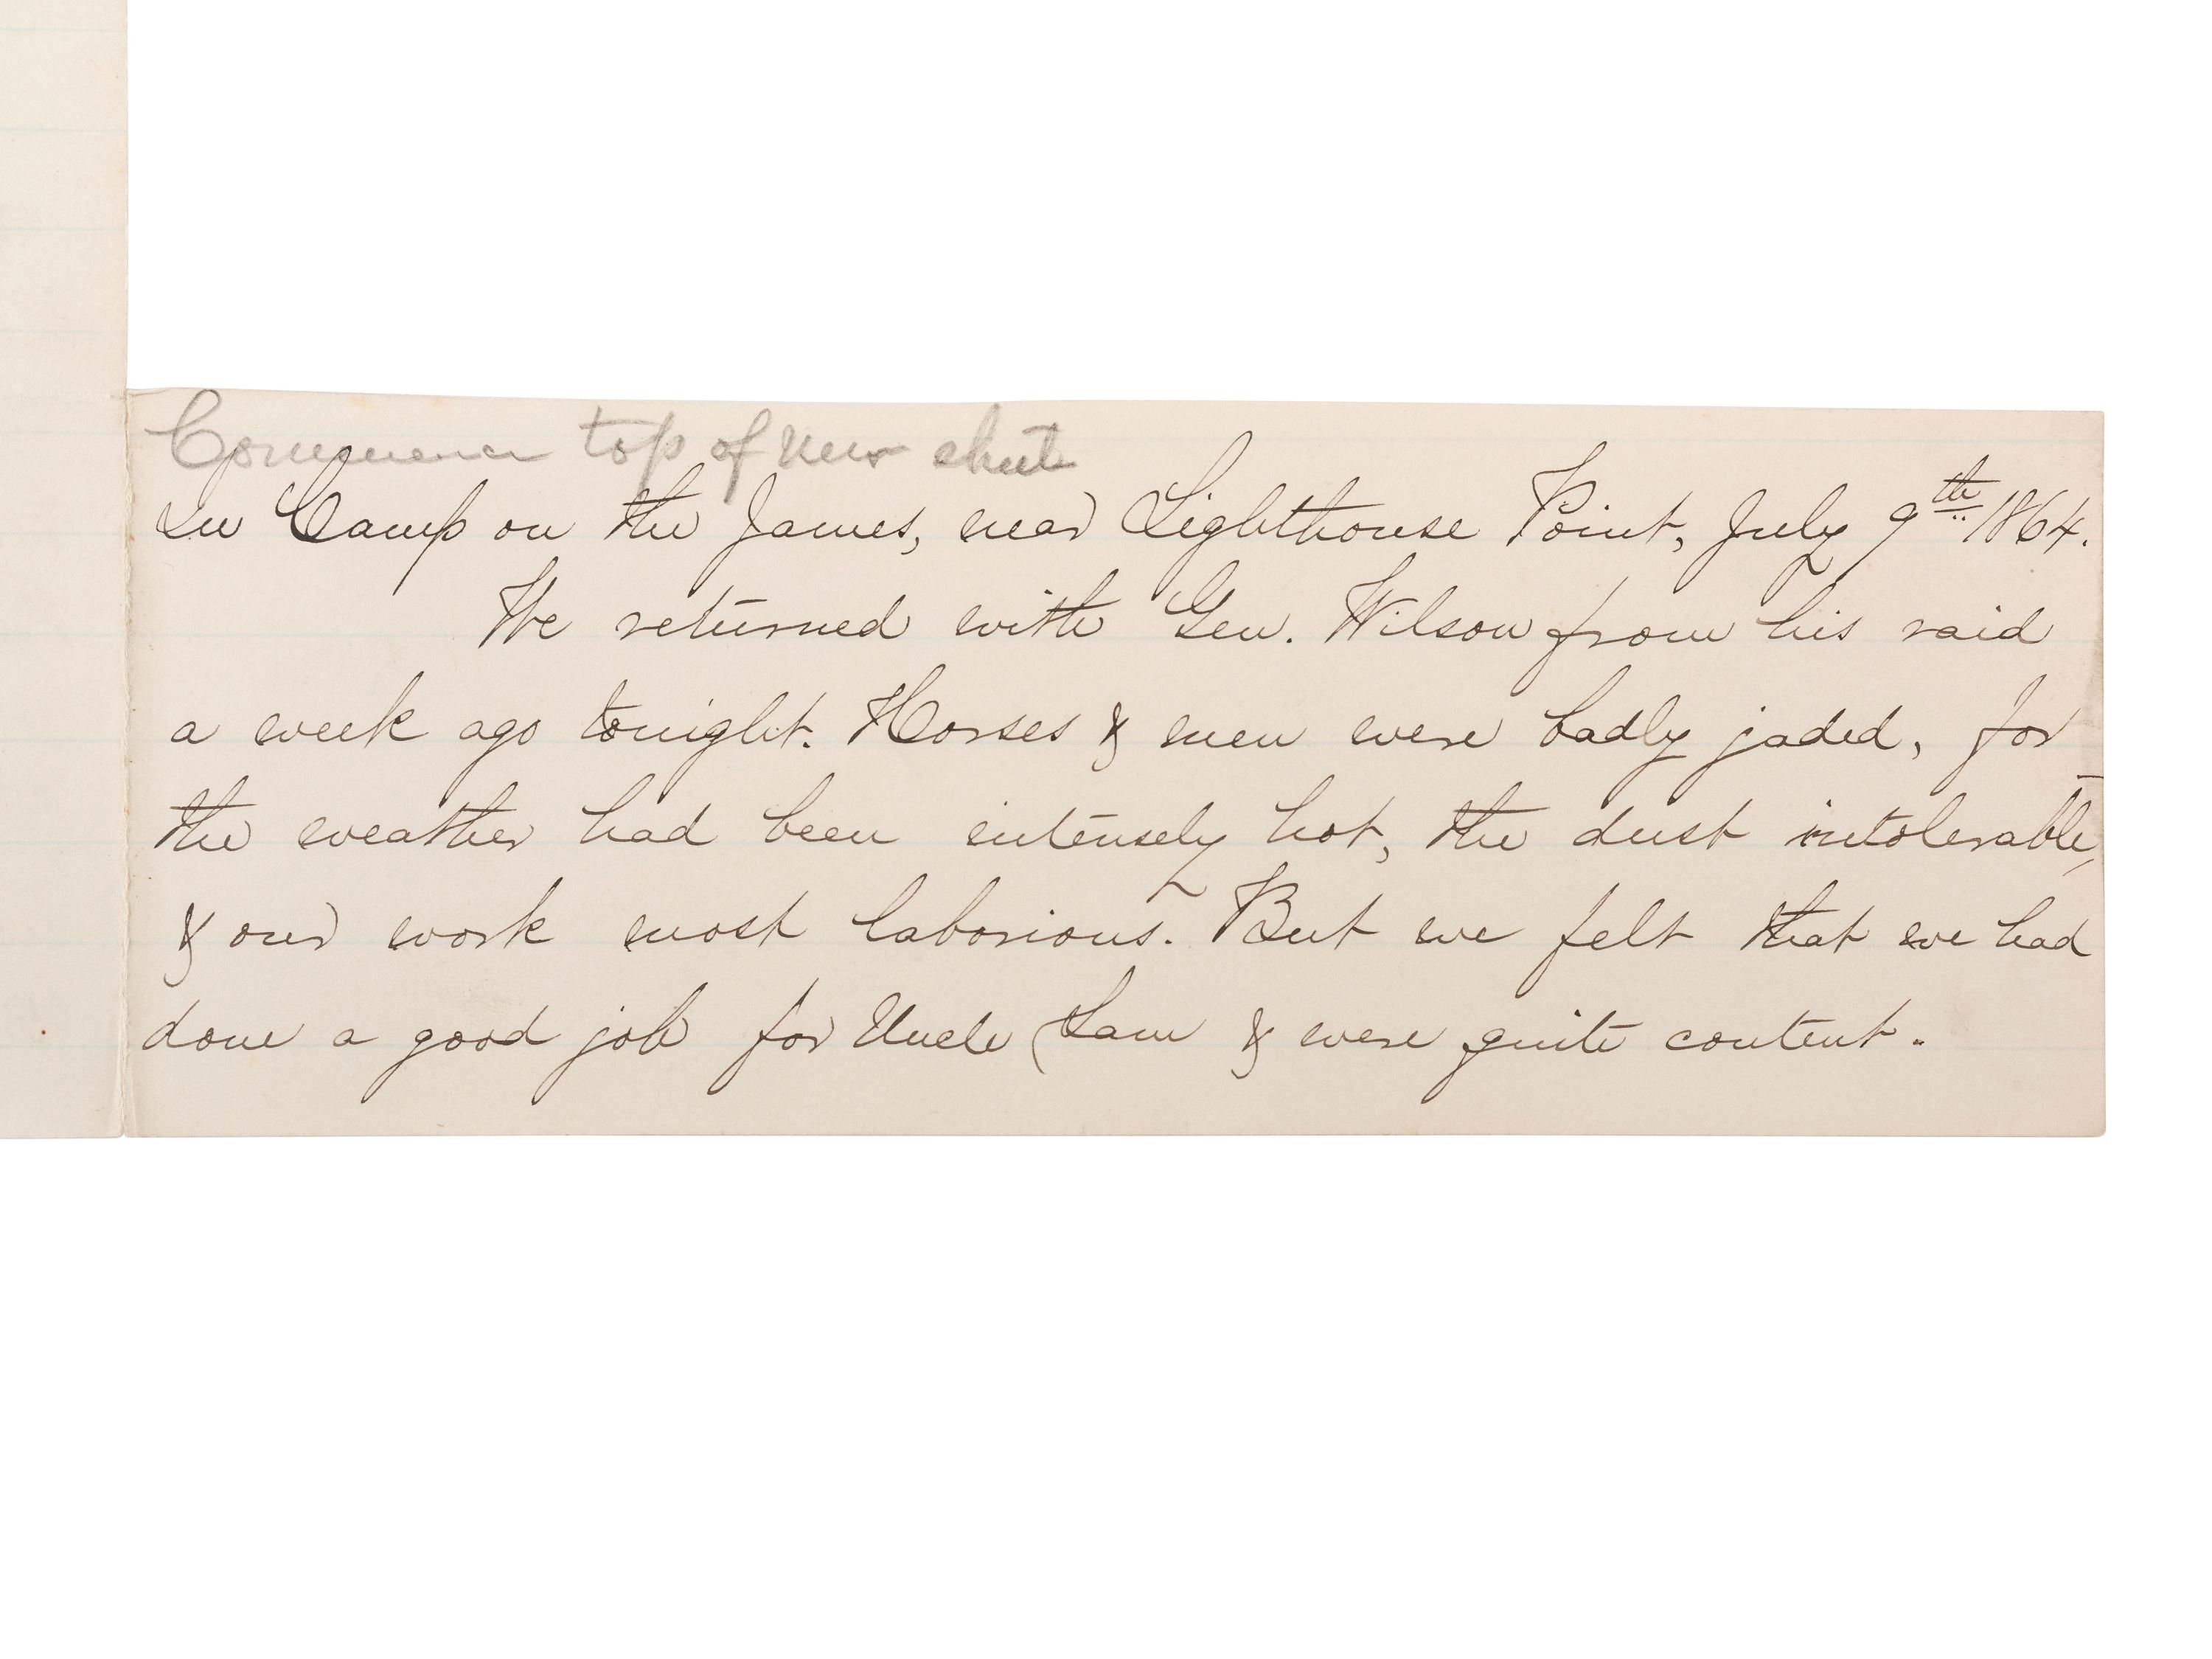 Commence top of new sheet
In Camp on the James, near Lighthouse Point, July 9th 1864.
We returned with Gen. Wilson from his raid
a week ago tonight. Horses & men were badly jaded, for
the weather had been intensely hot, the dust intolerable,
& our work most laborious. But we felt that we had
done a good job for Uncle Sam & were quite content.